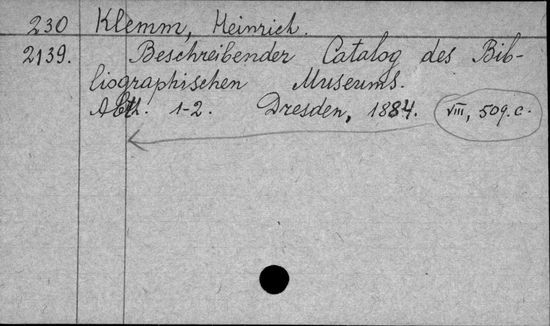 230 Klemm, Heinrich.
2139. Beschreibender Catalog des Bib-
liographischen Museums.
Abth. 1-2. Dresden, 1884. VIII, 509. c.